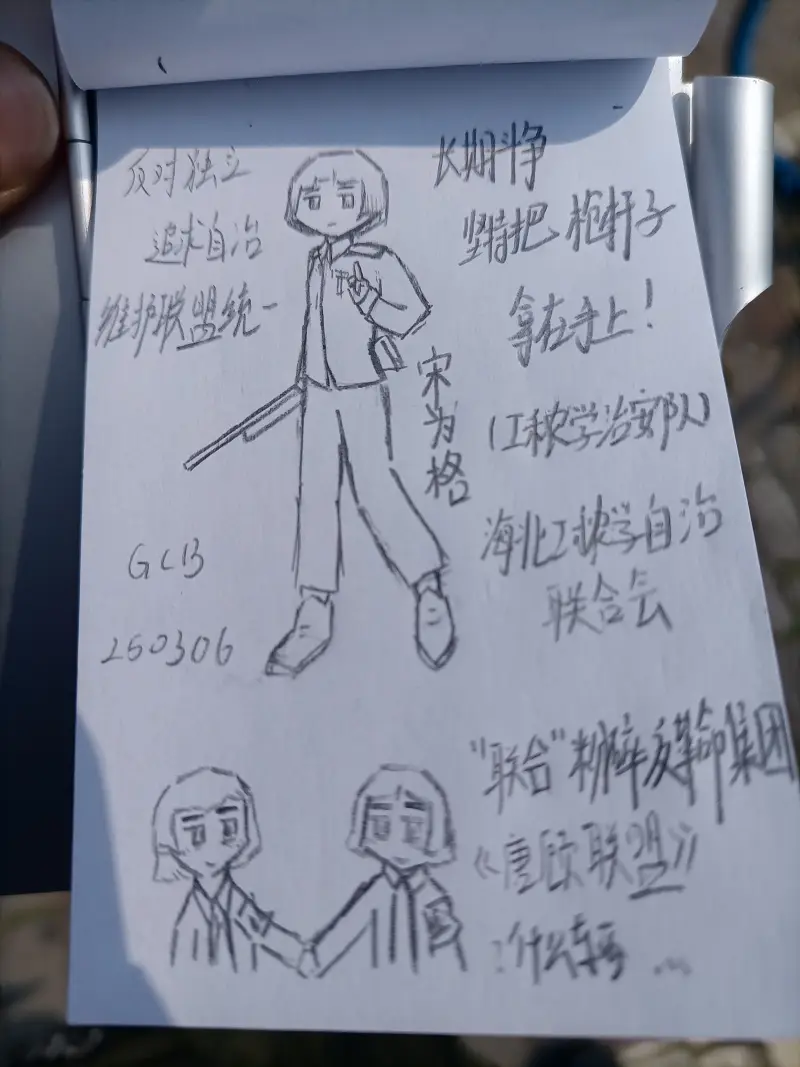 反对独立
追求自治
维护联盟统一
长期斗争
坚持把枪杆子
拿在手上！
宋为格
(工秾学治安队)
海北工秾学自治
联合会
GCB
250306
"联合"粉碎反革命集团
《唐顾联盟》
:什么东西 ...